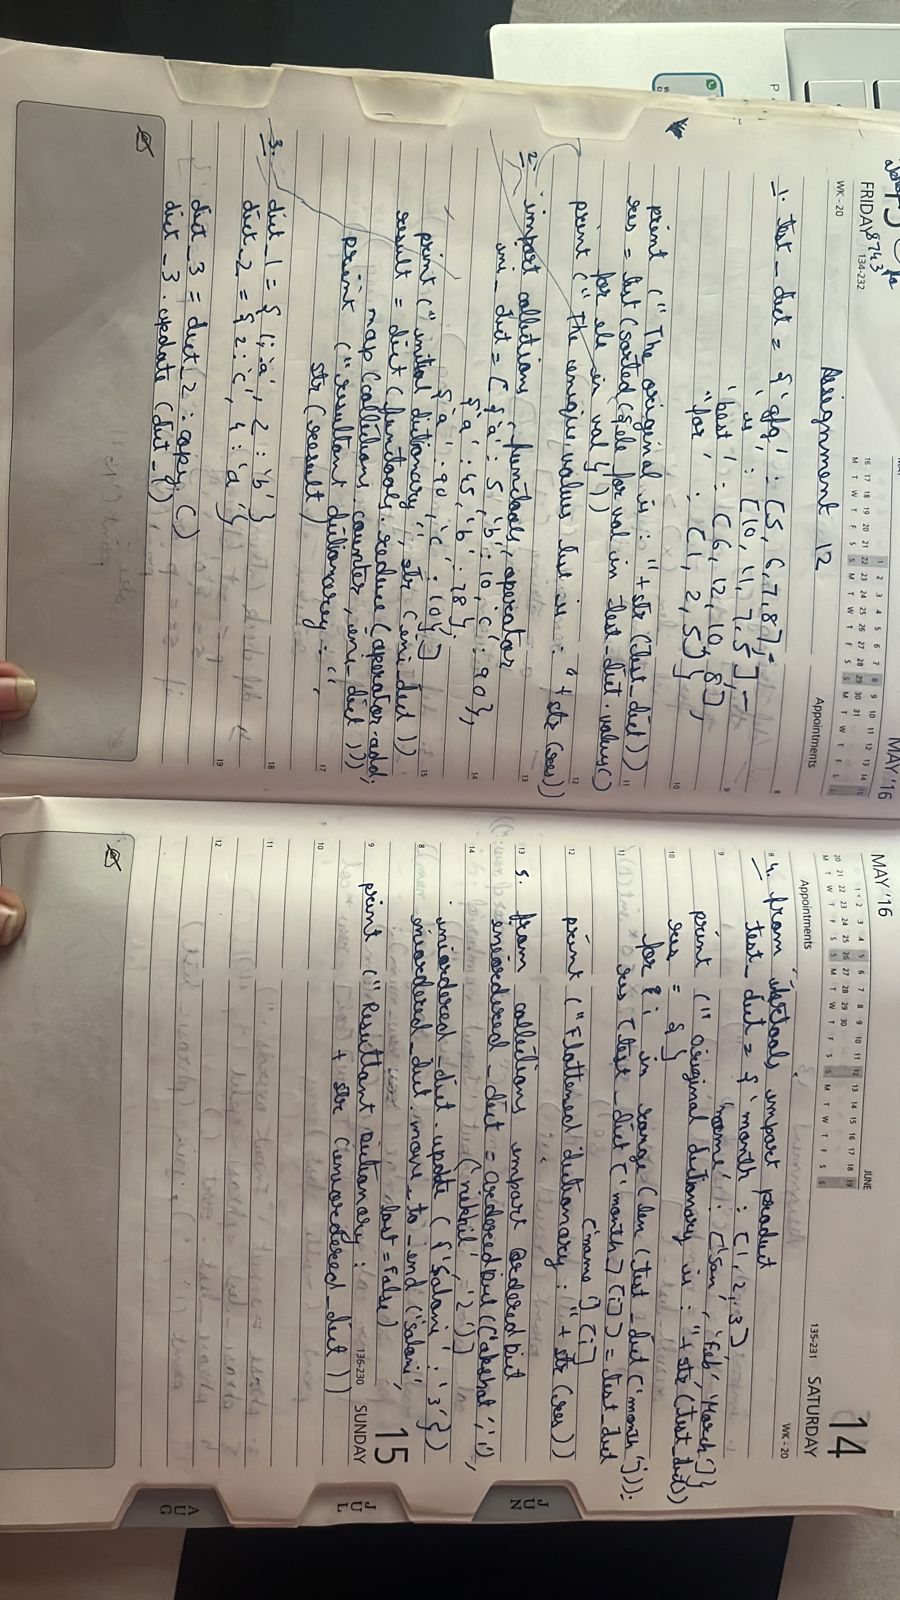 FRIDAY
WK - 20
134-232
MAY '16
Appointments
Assignment 12
1. test_dict = { 'gfg' : [5, 6, 7, 8],
'is' : [10, 11, 7, 5],
'best' : [6, 12, 10, 8],
'for' : [1, 2, 5] }
print ("The original is : " + str (test_dict))
res = list (sorted ({ele for val in test_dict.values()
for ele in val}))
print ("The unique values list is : " + str (res))
2. import collections, functools, operator
ini_dict = [ {'a' : 5, 'b' : 10, 'c' : 90},
{'a' : 45, 'b' : 78},
{'a' : 90, 'c' : 10} ]
print ("initial dictionary", str (ini_dict))
result = dict (functools.reduce (operator.add,
map (collections.counter, ini_dict)))
print ("resultant dictionary : ",
str (result)
3. dict_1 = { 1 : 'a', 2 : 'b' }
dict_2 = { 2 : 'c', 4 : 'd' }
dict_3 = dict_2 . copy ()
dict_3 . update (dict_1)
MAY '16
JUNE
14
Appointments
135-231
SATURDAY
WK - 20
4. from itertools import product
test_dict = { 'month' : [1, 2, 3],
'name' : ['Jan', 'Feb', 'March'] }
print ("original dictionary is : " + str (test_dict))
res = { }
for i in range (len (test_dict ['month'])):
res [test_dict ['month'] [i]] = test_dict
['name'] [i]
print ("Flattened dictionary : " + str (res))
5. from collections import OrderedDict
iniordered_dict = OrderedDict ([('akshat', '1'),
('nikhil', '2')])
iniordered_dict.update ( {'Saloni' : '3'} )
iniordered_dict.move_to_end ('Saloni',
last = False)
136-230
SUNDAY
15
print ("Resultant Dictionary :
" + str (iniordered_dict))
JUN
JUL
AUG